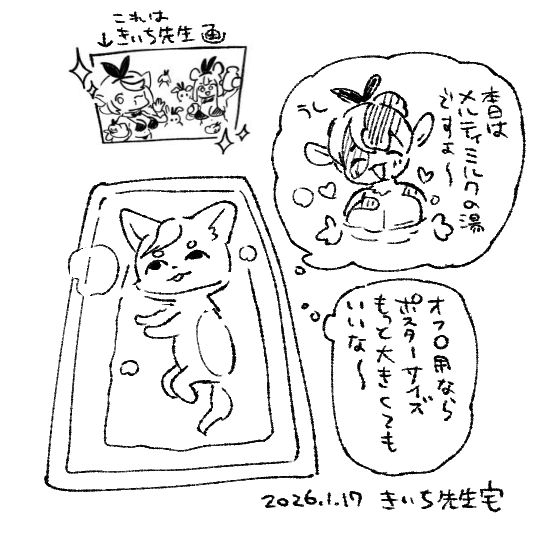 これは
↓きいち先生画
本日は
メルティミルクの湯
ですよ〜
うし
オフロ用なら
ポスターサイズ
もっと大きくても
いいな〜
2026.1.17 きいち先生宅